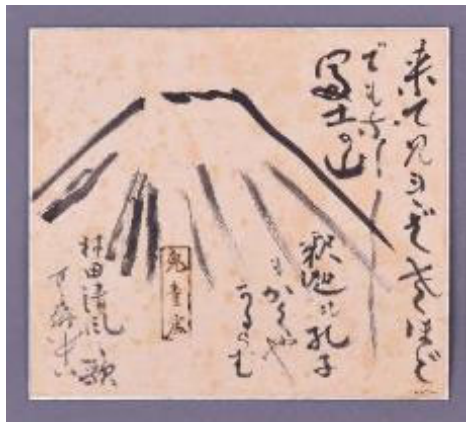 来て見ればさほど
でもなし
富士の山
釈迦も孔子
もかくや
あるらむ
村田清風の歌